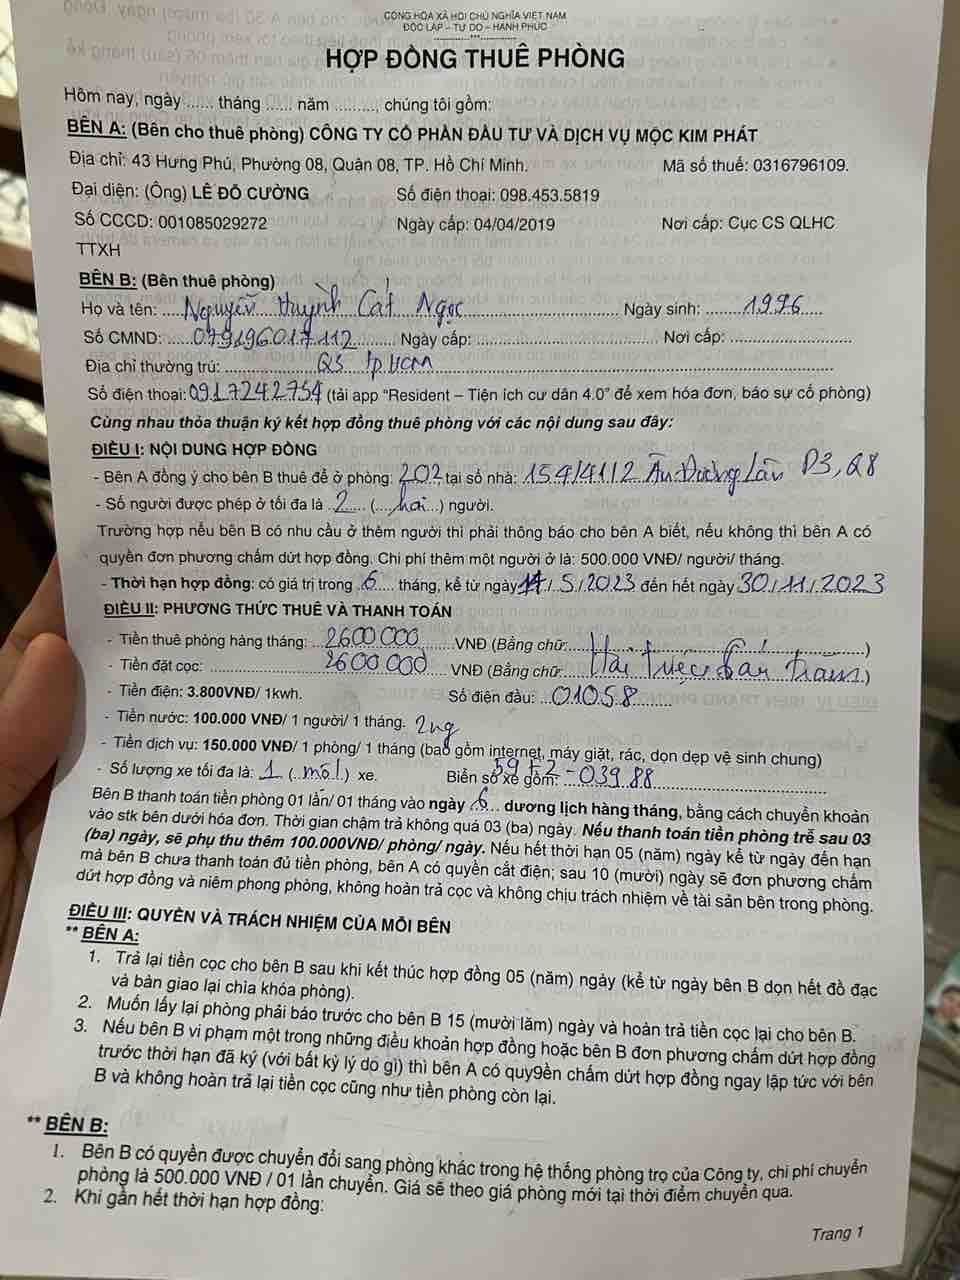 CỘNG HÒA XÃ HỘI CHỦ NGHĨA VIỆT NAM
ĐỘC LẬP – TỰ DO – HẠNH PHÚC
HỢP ĐỒNG THUÊ PHÒNG
Hôm nay, ngày ...... tháng ...... năm ........., chúng tôi gồm:
BÊN A: (Bên cho thuê phòng) CÔNG TY CỔ PHẦN ĐẦU TƯ VÀ DỊCH VỤ MỘC KIM PHÁT
Địa chỉ: 43 Hưng Phú, Phường 08, Quận 08, TP. Hồ Chí Minh. Mã số thuế: 0316796109.
Đại diện: (Ông) LÊ ĐỖ CƯỜNG Số điện thoại: 098.453.5819
Số CCCD: 001085029272 Ngày cấp: 04/04/2019 Nơi cấp: Cục CS QLHC
TTXH
BÊN B: (Bên thuê phòng)
Họ và tên: Nguyễn Huỳnh Cát Ngọc Ngày sinh: 1996
Số CMND: 079196017112 Ngày cấp: Nơi cấp:
Địa chỉ thường trú: Q8 Tp HCM
Số điện thoại: 0917242754 (tải app “Resident – Tiện ích cư dân 4.0” để xem hóa đơn, báo sự cố phòng)
Cùng nhau thỏa thuận ký kết hợp đồng thuê phòng với các nội dung sau đây:
ĐIỀU I: NỘI DUNG HỢP ĐỒNG
- Bên A đồng ý cho bên B thuê để ở phòng: 202 tại số nhà: 154/41/2 Âu Dương Lân P3, Q8
- Số người được phép ở tối đa là 2 (hai) người.
Trường hợp nếu bên B có nhu cầu ở thêm người thì phải thông báo cho bên A biết, nếu không thì bên A có
quyền đơn phương chấm dứt hợp đồng. Chi phí thêm một người ở là: 500.000 VNĐ/ người/ tháng.
- Thời hạn hợp đồng: có giá trị trong 6 tháng, kể từ ngày 14/5/2023 đến hết ngày 30/11/2023
ĐIỀU II: PHƯƠNG THỨC THUÊ VÀ THANH TOÁN
- Tiền thuê phòng hàng tháng: 2600000 VNĐ (Bằng chữ: )
- Tiền đặt cọc: 2600000 VNĐ (Bằng chữ: Hai triệu sáu trăm )
- Tiền điện: 3.800VNĐ/ 1kwh. Số điện đầu: 01058
- Tiền nước: 100.000 VNĐ/ 1 người/ 1 tháng. 2ng
- Tiền dịch vụ: 150.000 VNĐ/ 1 phòng/ 1 tháng (bao gồm internet, máy giặt, rác, dọn dẹp vệ sinh chung)
- Số lượng xe tối đa là: 1 (một) xe. Biển số xe gồm: 59+2-03988
Bên B thanh toán tiền phòng 01 lần/ 01 tháng vào ngày 6 dương lịch hàng tháng, bằng cách chuyển khoản
vào stk bên dưới hóa đơn. Thời gian chậm trả không quá 03 (ba) ngày. Nếu thanh toán tiền phòng trễ sau 03
(ba) ngày, sẽ phụ thu thêm 100.000VNĐ/ phòng/ ngày. Nếu hết thời hạn 05 (năm) ngày kể từ ngày đến hạn
mà bên B chưa thanh toán đủ tiền phòng, bên A có quyền cắt điện; sau 10 (mười) ngày sẽ đơn phương chấm
dứt hợp đồng và niêm phong phòng, không hoàn trả cọc và không chịu trách nhiệm về tài sản bên trong phòng.
ĐIỀU III: QUYỀN VÀ TRÁCH NHIỆM CỦA MỖI BÊN
** BÊN A:
1. Trả lại tiền cọc cho bên B sau khi kết thúc hợp đồng 05 (năm) ngày (kể từ ngày bên B dọn hết đồ đạc
và bàn giao lại chìa khóa phòng).
2. Muốn lấy lại phòng phải báo trước cho bên B 15 (mười lăm) ngày và hoàn trả tiền cọc lại cho bên B.
3. Nếu bên B vi phạm một trong những điều khoản hợp đồng hoặc bên B đơn phương chấm dứt hợp đồng
trước thời hạn đã ký (với bất kỳ lý do gì) thì bên A có quy9ền chấm dứt hợp đồng ngay lập tức với bên
B và không hoàn trả lại tiền cọc cũng như tiền phòng còn lại.
** BÊN B:
1. Bên B có quyền được chuyển đổi sang phòng khác trong hệ thống phòng trọ của Công ty, chi phí chuyển
phòng là 500.000 VNĐ / 01 lần chuyển. Giá sẽ theo giá phòng mới tại thời điểm chuyển qua.
2. Khi gần hết thời hạn hợp đồng:
Trang 1